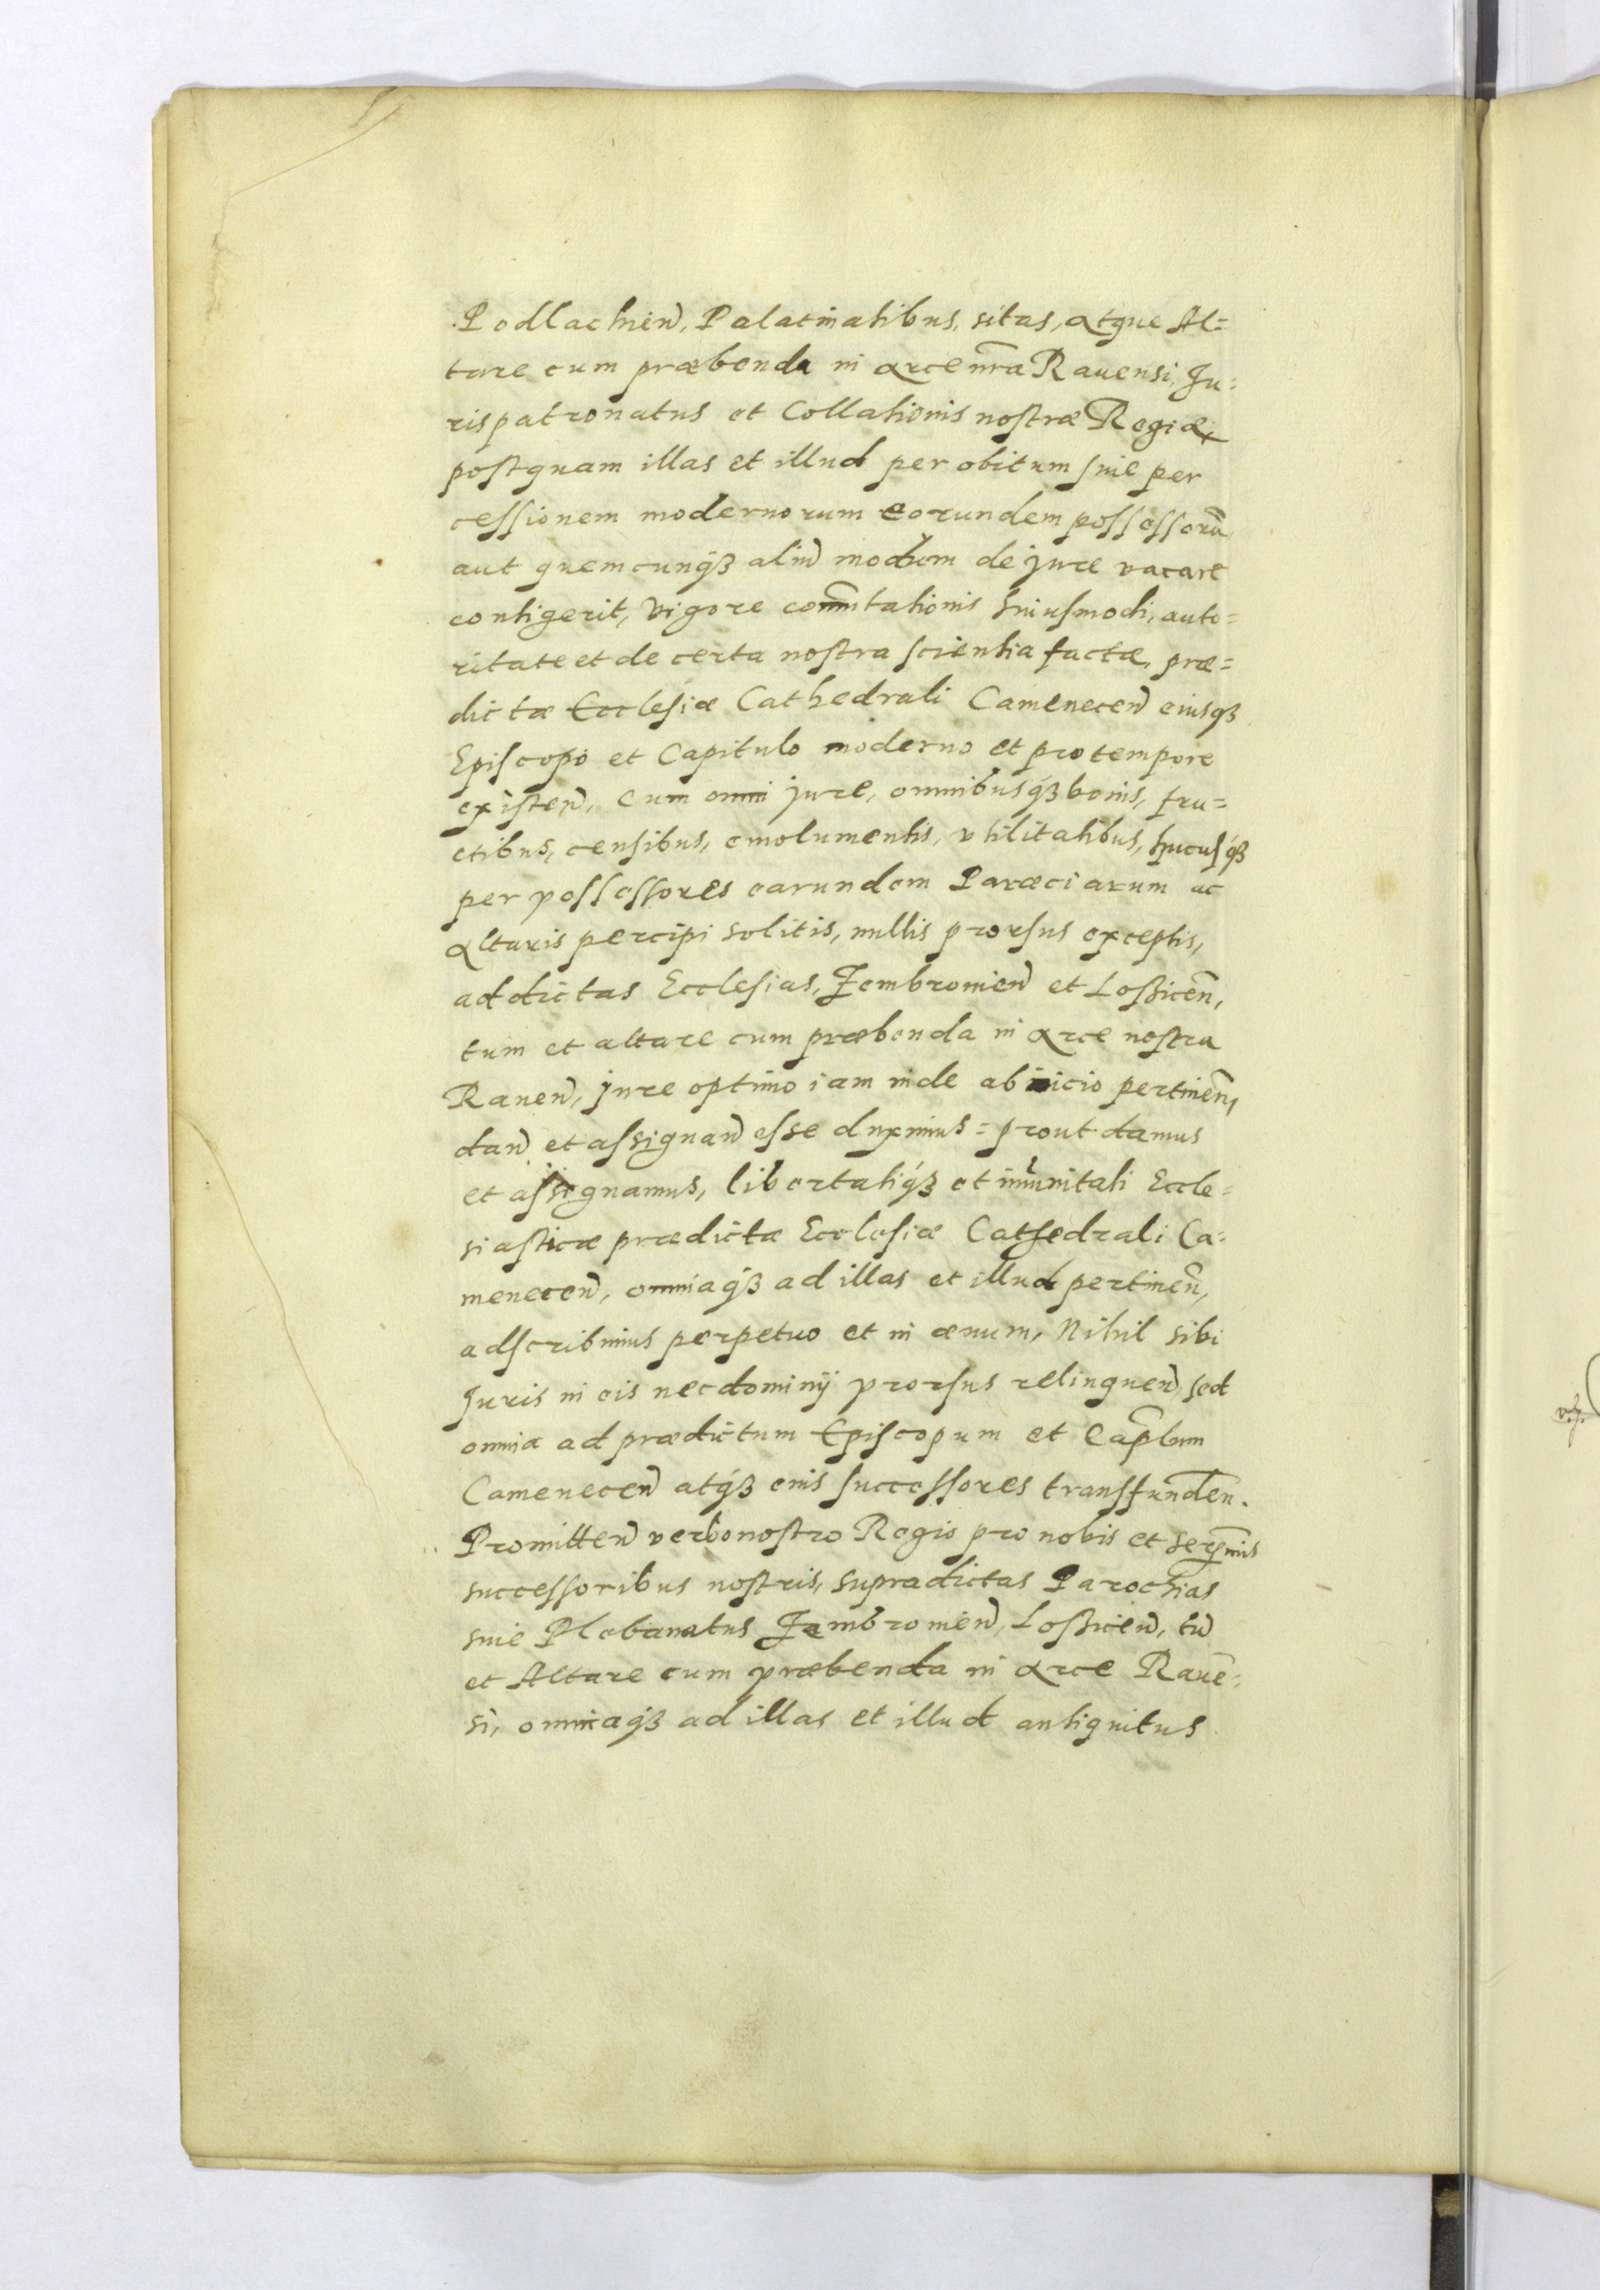 Podlachien̄, Palatinatibus, sitas, atque Al=
tare cum præbenda in arce nr̄a Rauensi, Ju=
rispatronatus et Collationis nostræ Regiæ,
postquam illas et illud per obitum siue per
cessionem modernorum eorundem possessorū
aut quemcunqꝫ aliū modum de jure vacare
contigerit, vigore com̄utationis huiusmodi, auto=
ritate et de certa nostra scientia factæ, præ=
dictæ Ecclesiæ Cathedrali Camenecen̄ eiusqꝫ
Episcopo et Capitulo moderno et pro tempore
existen̄, cum omni jure, omnibusqꝫ bonis, fru=
ctibus, censibus, emolumentis, vtilitatibus, hucusqꝫ
per possessores earundem Paræciarum ac
altaris percipi solitis, nullis prorsus exceptis,
ad dictas Ecclesias, Jembronien̄ et Loßicen̄,
tum et altare cum præbenda in arce nostra
Rauen̄, jure optimo iam inde ab inicio pertinen̄,
dan̄ et assignan̄ esse duximus = prout damus
et assignamus, libertatiqꝫ et immunitati Eccle=
siasticæ prædictæ Ecclesiæ Cathedrali Ca=
menecen̄, omniaqꝫ ad illas et illud pertinen̄,
adscribimus perpetuo et in æuum, Nihil sibi
Juris in eis nec dominij prorsus relinquen̄ sed
omnia ad prædictum Episcopum et Cap̄lum
Camenecen̄ atqꝫ eius successores transfunden̄.
Promitten̄ verbo nostro Regio pro nobis et Ser̄mis
successoribus nostris, supradictas Parochias
siue Plebanatus Jembromien̄, Loßicen̄, tū
et Altare cum præbenda in arce Rauē=
si, omniaqꝫ ad illas et illud antiquitus